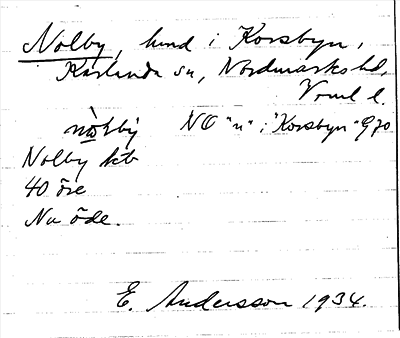 Nolby, hmd i Korsbyn,
Karlanda sn, Nordmarks hd,
Vrml l.
nòlby NO "n" i "Korsbyn" G 70
Nolby ktb
40 öre
Nu öde.
E. Andersson 1934.